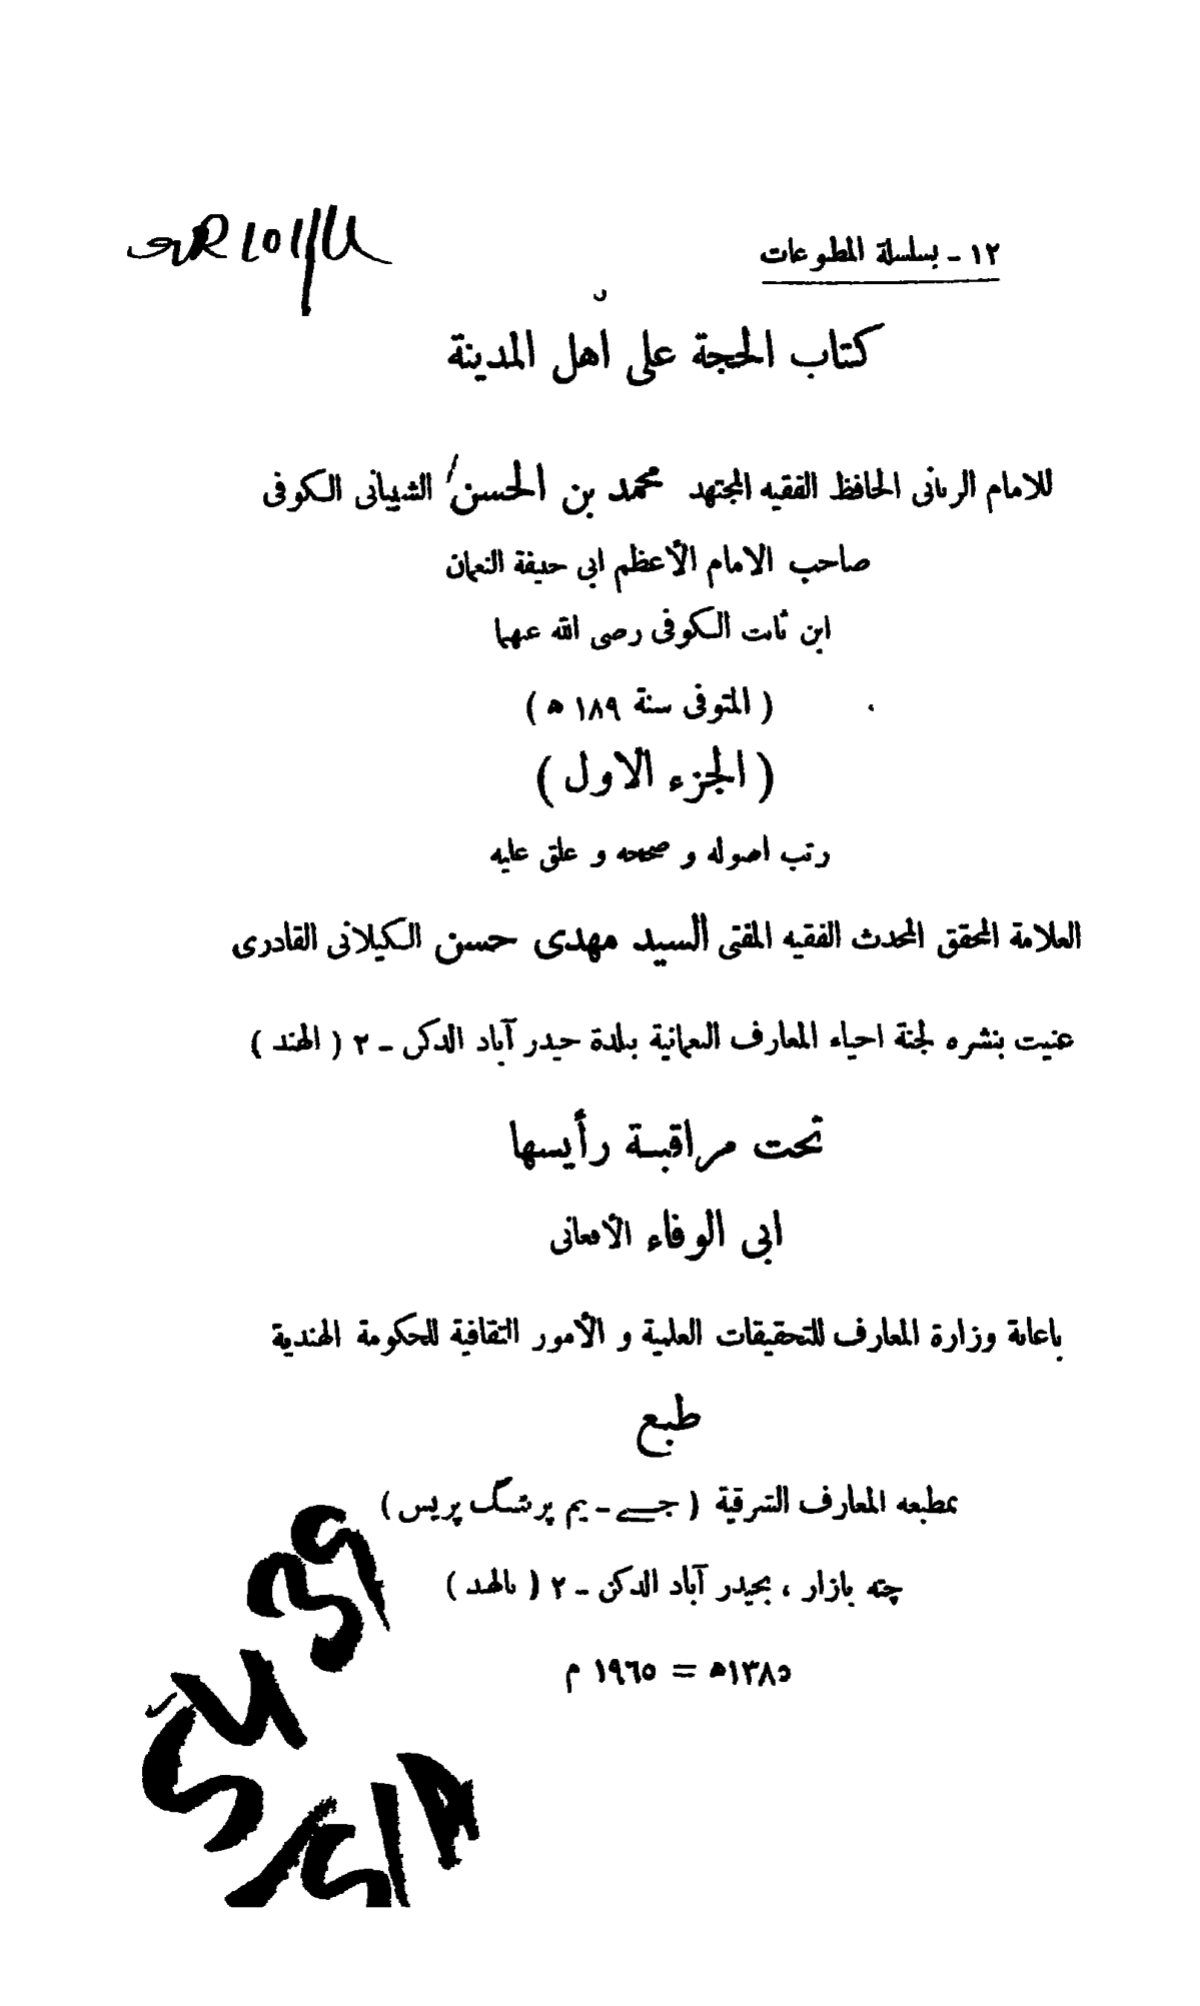 ١٢ - بسلسلة المطبوعات
كتاب الحجة على اهل المدينة
للامام الربانى الحافظ الفقيه المجتهد محمد بن الحسن الشيبانى الكوفى
صاحب الامام الأعظم ابى حنيفة النعمان
ابن ثابت الكوفى رضى الله عنهما
( المتوفى سنة ١٨٩ ه )
( الجزء الاول )
رتب اصوله و صححه و علق عليه
العلامة المحقق المحدث الفقيه المفتى السيد مهدى حسن الكيلانى القادرى
عنيت بنشره لجنة احياء المعارف النعمانية ببلدة حيدر آباد الدكن - ٢ ( الهند )
تحت مراقبة رأيسها
ابى الوفاء الأفغانى
باعانة وزارة المعارف للتحقيقات العلمية و الأمور الثقافية للحكومة الهندية
طبع
بمطبعه المعارف الشرقية ( جے - يم پرنٹنگ پريس )
چته بازار ، بحيدر آباد الدكن - ٢ ( بالهند )
١٣٨٥ه = ١٩٦٥ م